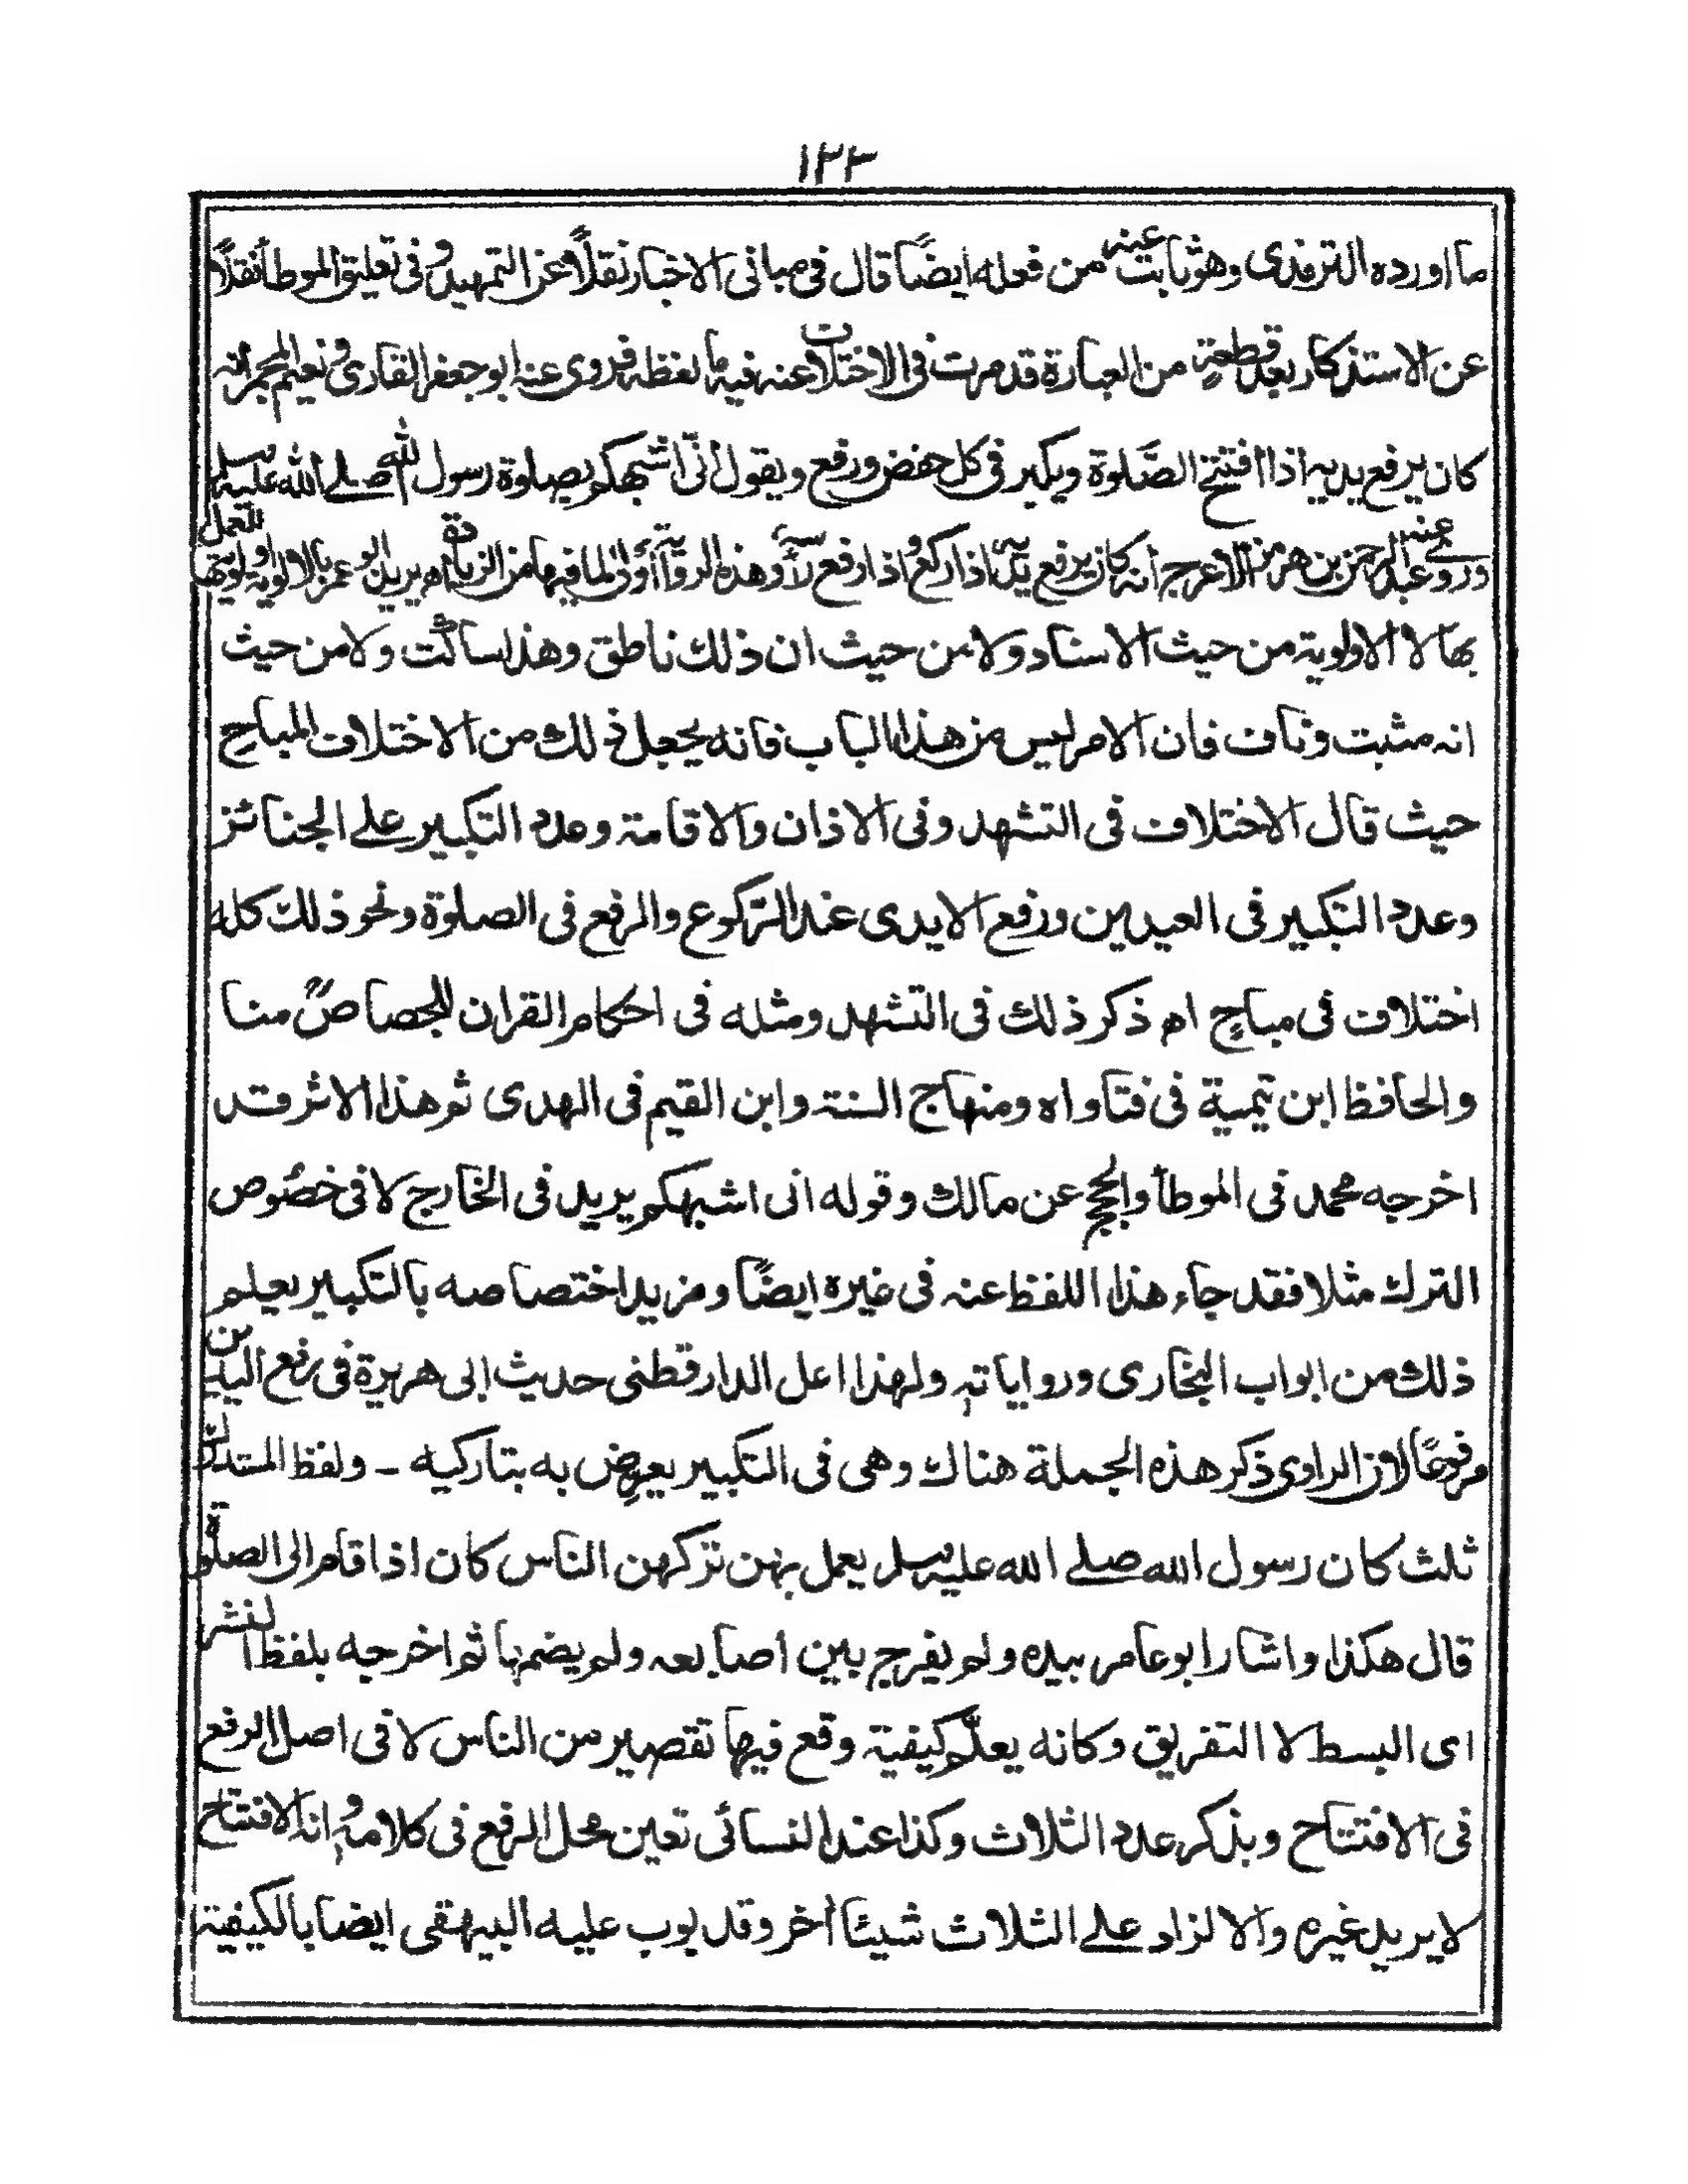 ١٢٣
ما اورده الترمذى وهو ثابت عنه من فعله ايضًا قال فى مبانى الاخبار نقلاً عن التمهيد وفى تعليق الموطأ نقلاً
عن الاستذكار بعد قطعةٍ من العبارة قد مرت فى الاختلاف عنه فيه ما لفظه فروى عنه ابو جعفر القارى ونعيم المجمر انه
كان يرفع يديه اذا افتتح الصَّلوة ويكبر فى كل خفض ورفع ويقول انّى اشبهكم بصلوة رسول الله صلے الله عليه وسلم
وروى عنه عبد الرحمن بن هرمز الاعرج أنه كان يرفع يديه اذا ركع واذا رفع رأسه وهذه الرواية أولىٰ لما فيها من الزيادة اه يريد ابو عمر بالاولوية اولويتها للعمل
بها لا الاولوية من حيث الاسناد ولا من حيث ان ذلك ناطق وهذا ساكت ولا من حيث
انه مثبت وناف فان الامر ليس من هذا الباب فانه يجعل ذلك من الاختلاف المباح
حيث قال الاختلاف فى التشهد وفى الاذان والاقامة وعدد التكبير علے الجنائز
وعدد التكبير فى العيدين ورفع الايدى عند الركوع والرفع فى الصلوة ونحو ذلك كله
اختلاف فى مباحٍ اه ذكر ذلك فى التشهد ومثله فى احكام القران للجصاصؒ منا
والحافظ ابن تيمية فى فتاواه ومنهاج السنة وابن القيم فى الهدى ثم هذا الاثر قد
اخرجه محمد فى الموطأ والحجج عن مالك وقوله انى اشبهكم يريد فى الخارج لا فى خصوص
الترك مثلا فقد جاء هذا اللفظ عنه فى غيره ايضًا ومزيد اختصاصه بالتكبير يعلم
ذلك من ابواب البخارى ورواياته ولهذا اعل الدارقطنى حديث ابى هريرة فى رفع اليدين
مرفوعًا لان الراوى ذكر هذه الجملة هناك وهى فى التكبير يعرض به بتاركيه - ولفظ المستدرك
ثلث كان رسول الله صلے الله عليه وسلم يعمل بهن تركهن الناس كان اذا قام الى الصلوة
قال هكذا واشار ابو عامر بيده ولم يفرج بين أصابعه ولم يضمها ثم اخرجه بلفظ النشر
اى البسط لا التفريق وكانه يعلّم كيفية وقع فيها تقصير من الناس لا فى اصل الرفع
فى الافتتاح وبذكر عدد الثلاث وكذا عند النسائى تعين محل الرفع فى كلامه وانه الافتتاح
لا يريد غيره والا لزاد علے الثلاث شيئا أخر وقد بوب عليه البيهقى ايضا بالكيفية